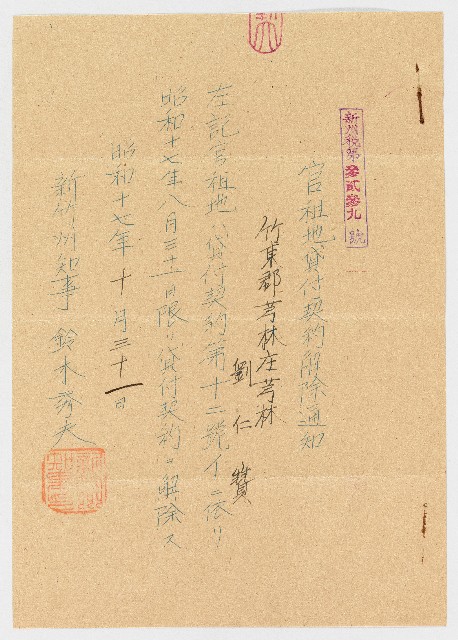 新竹税第參貳參九號
官租地貸付契約解除通知
竹東郡芎林庄芎林
劉仁贊
左記官租地ハ貸付契約第十二號イニ依リ
昭和十七年八月三十一日限リ貸付契約ヲ解除ス
昭和十七年十月三十一日
新竹州知事 鈴木